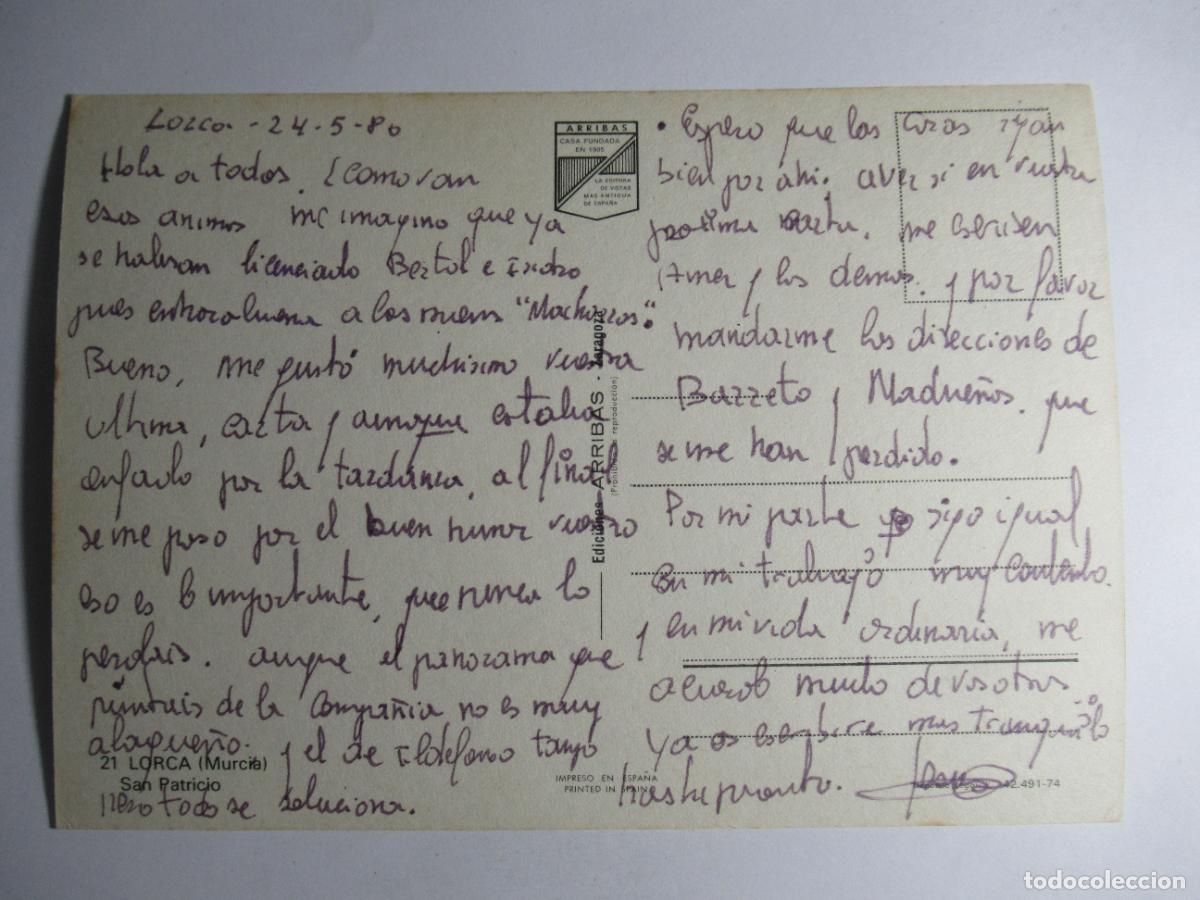 Lorca - 24-5-80
Hola a todos. ¿Como van
esos animos me imagino que ya
se habran licenciado Bertol e Isidro
pues enhorabuena a los nuevos "Machacas".
Bueno, me gustó muchisimo vuestra
ultima, carta y aunque estaba
enfado por la tardanza, al final
se me paso por el buen humor vuestro
eso es lo importante, que nunca lo
perdais. aunque el panorama que
pintais de la Compañia no es muy
alagueño. y el de Ildefonso tampo
pero todo se soluciona.
21 LORCA (Murcia)
San Patricio
ARRIBAS
CASA FUNDADA
EN 1905
LA EDITORA
DE VISTAS
MAS ANTIGUA
DE ESPAÑA
Ediciones ARRIBAS - Zaragoza
(Prohibida la reproducción)
IMPRESO EN ESPAÑA
PRINTED IN SPAIN
• Espero que las cosas vyan
bien por ahi. aver si en vuestra
proxima carta, me escriben
y los demas. y por favor
mandarme las direcciones de
Barreto y Madueños. que
se me han perdido.
Por mi parte yo sigo igual
en mi trabajo muy contento.
y en mi vida ordinaria, me
acuerdo mucho de vosotros
ya os escribire mas tranquilo
hasta pronto.
42.491-74
todocoleccion